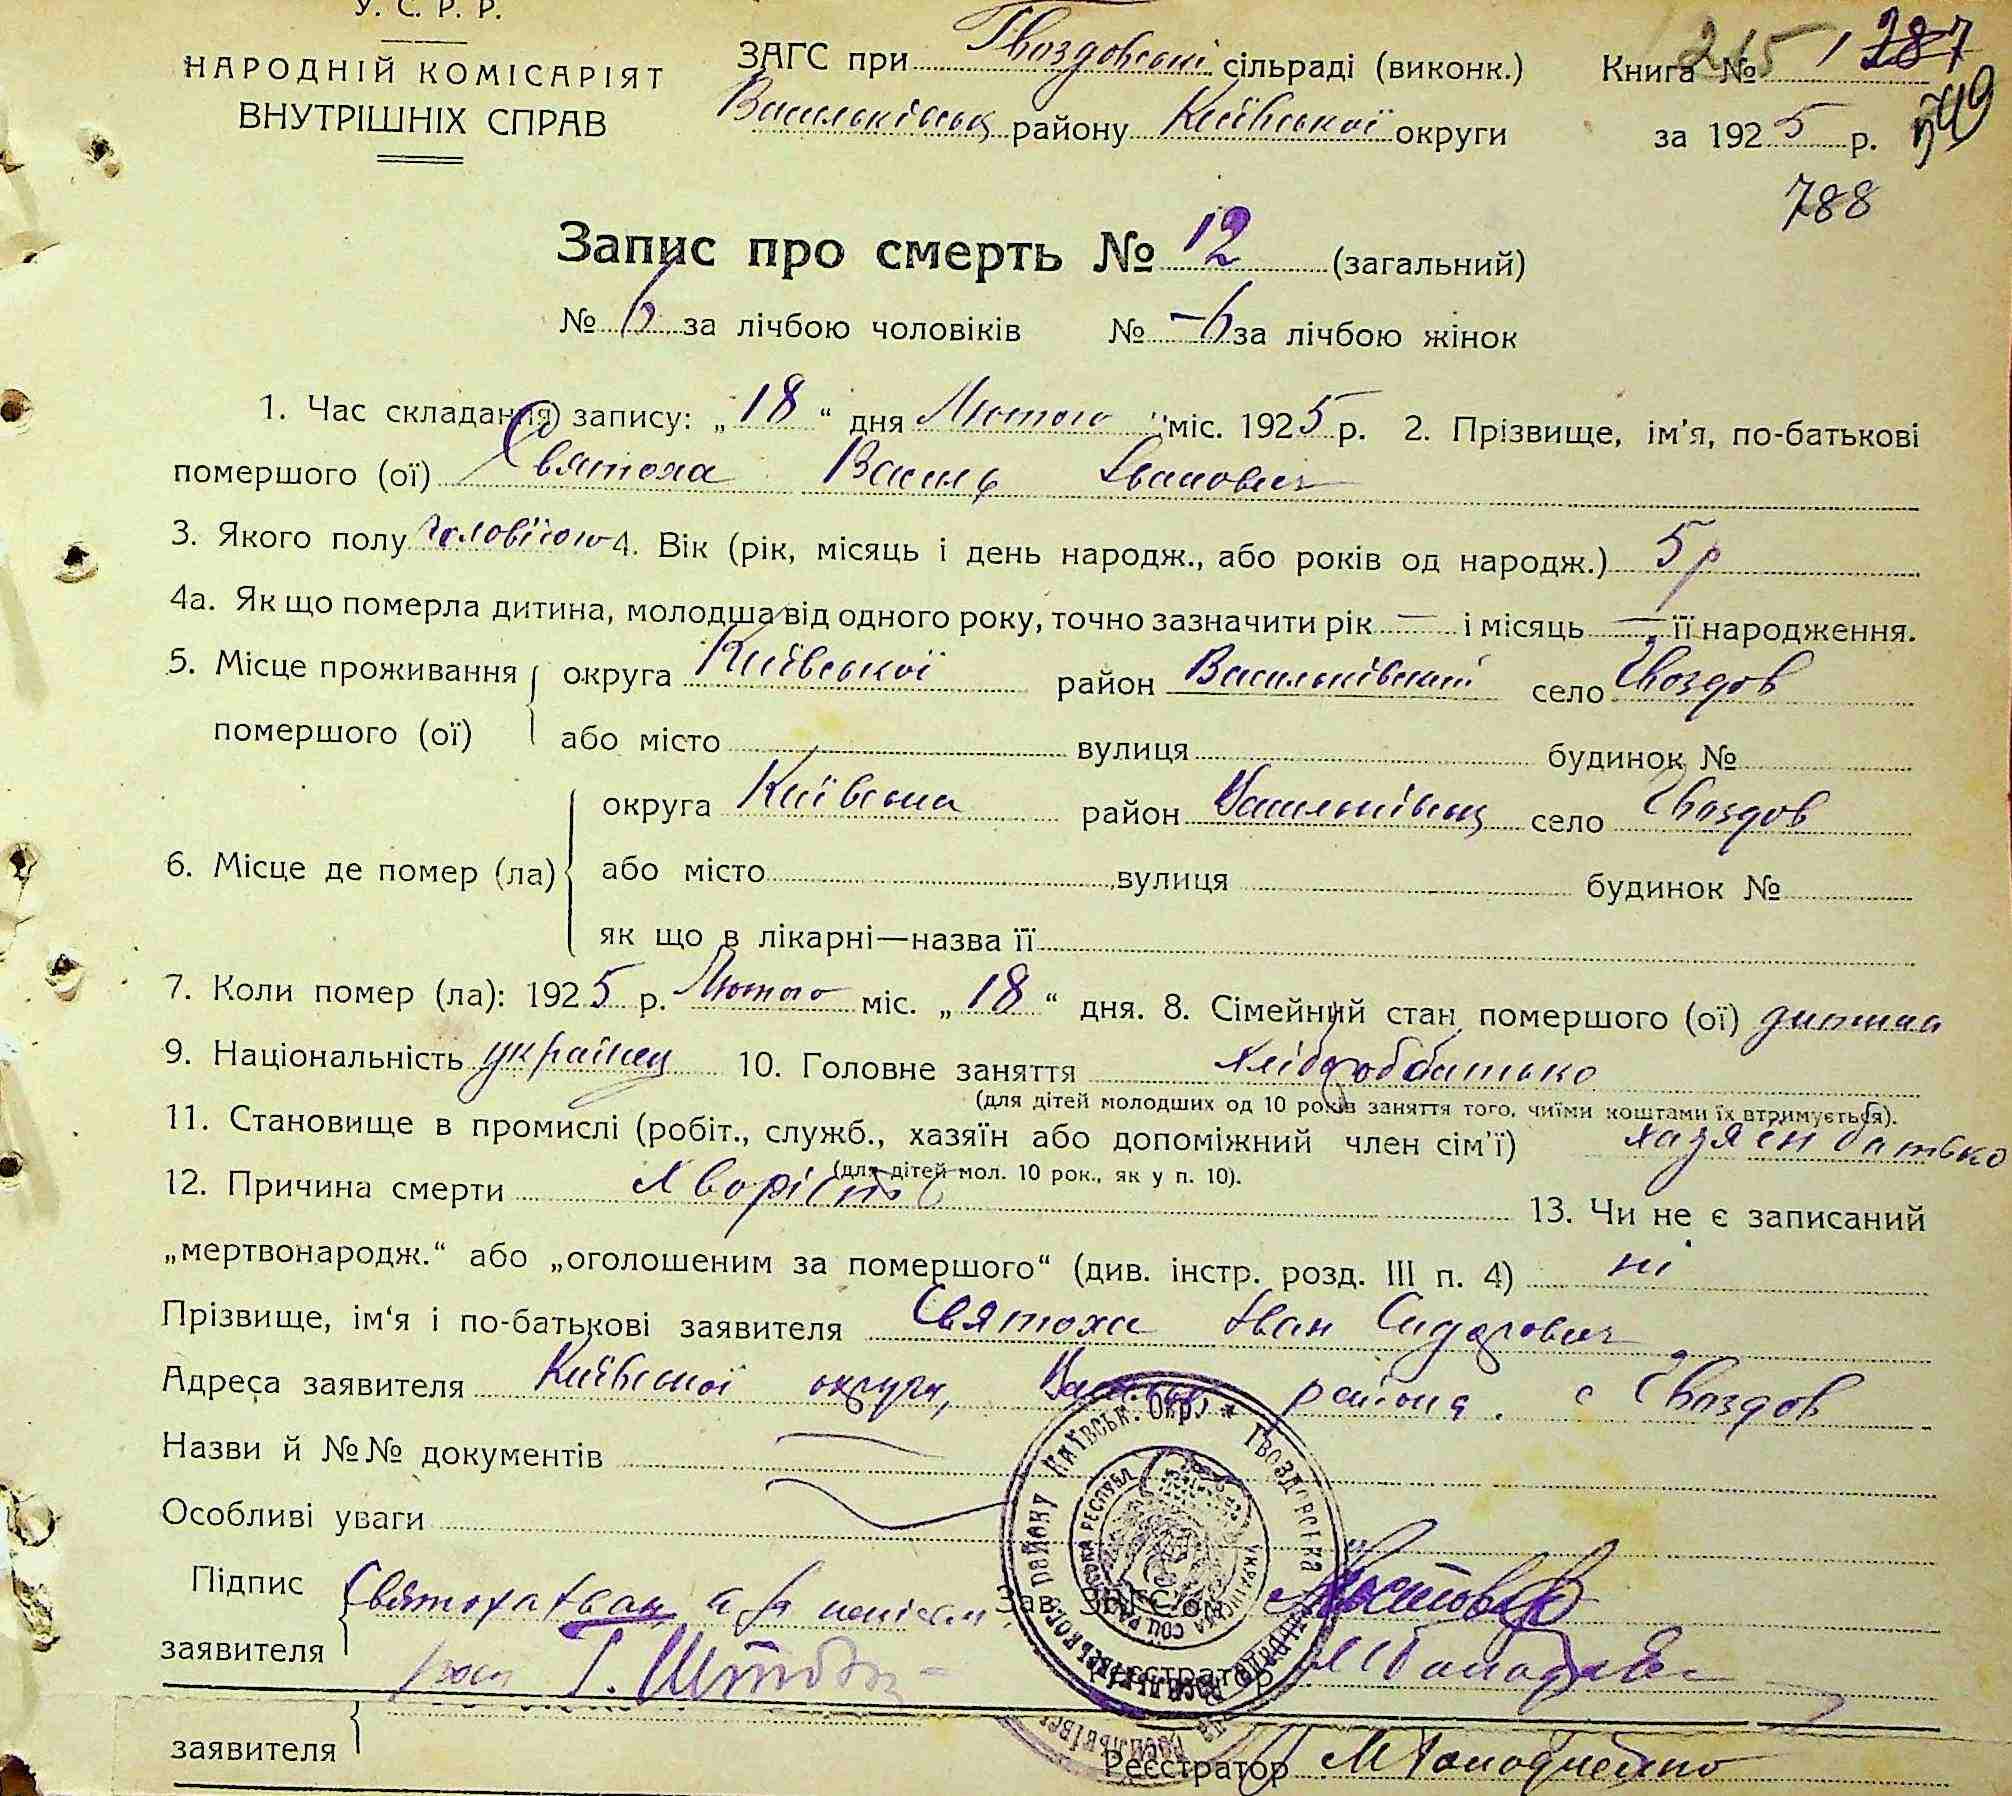 У. С. Р. Р.
НАРОДНІЙ КОМІСАРІЯТ
ВНУТРІШНІХ СПРАВ
ЗАГС при Гвоздовські сільраді (виконк.)
Васильківськ району Київської округи
Книга № 1 287
215
за 1925 р.
788
Запис про смерть № 12 (загальний)
№ 6 за лічбою чоловіків № -6 за лічбою жінок
1. Час складання запису: „18“ дня Лютого міс. 1925 р. 2. Прізвище, ім'я, по-батькові
помершого (ої) Святоха Василь Іванович
3. Якого полу 4. Вік (рік, місяць і день народж., або років од народж.) 5 р
4а. Як що померла дитина, молодша від одного року, точно зазначити рік — і місяць — її народження.
5. Місце проживання помершого (ої) округа Київської район Васильківський село Гвоздов
або місто вулиця будинок №
6. Місце де помер (ла) округа Київська район Васильківськ село Гвоздов
або місто вулиця будинок №
як що в лікарні—назва її
7. Коли помер (ла): 1925 р. Лютого міс. „18“ дня. 8. Сімейний стан помершого (ої) дитина
9. Національність українец 10. Головне заняття хлібороб батько
(для дітей молодших од 10 років заняття того, чиїми коштами їх втримується).
11. Становище в промислі (робіт., служб., хазяїн або допоміжний член сім'ї) хазяїн батько
(для дітей мол. 10 рок., як у п. 10).
12. Причина смерти Хворість 13. Чи не є записаний
„мертвонародж.“ або „оголошеним за помершого“ (див. інстр. розд. III п. 4) ні
Прізвище, ім‘я і по-батькові заявителя Святоха Іван Сидорович
Адреса заявителя Київської округи, района. с Гвоздов
Назви й №№ документів
Особливі уваги
Підпис заявителя Святоха Іван
Зав. ЗАГС'ом
Реєстратор
заявителя
Реєстратор